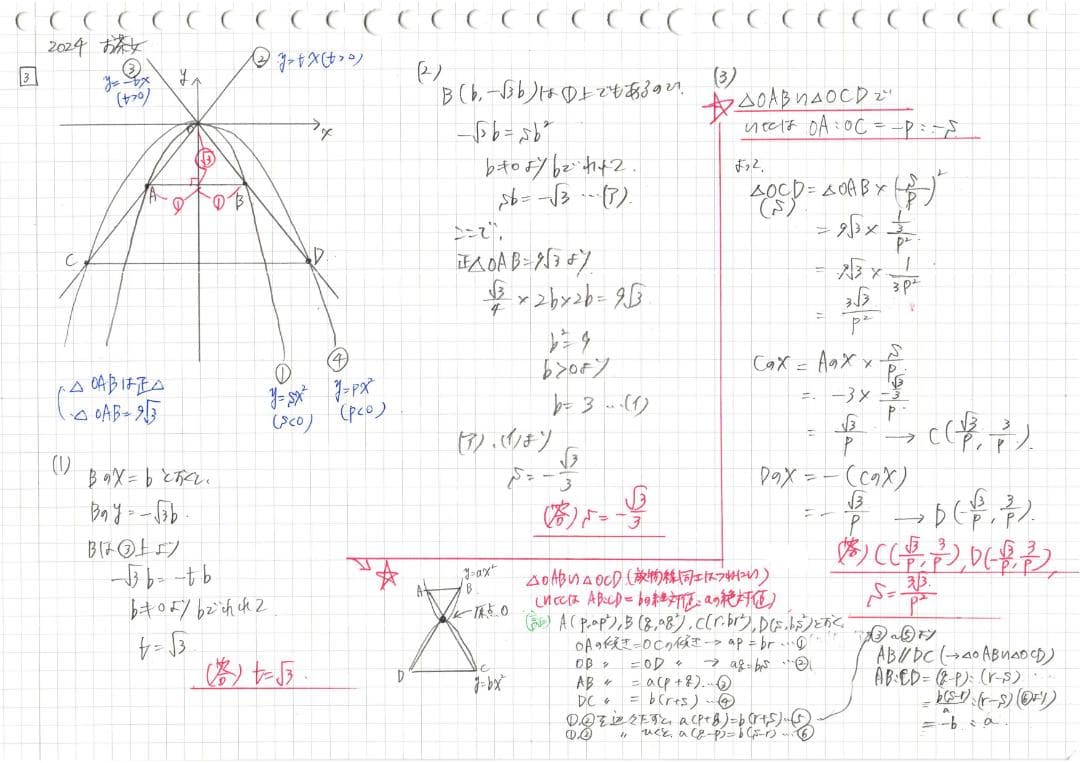 2024 お茶女
3
③
y=-tx
(t>0)
② y=tx(t>0)
y
x
O
√3
A
B
①
①
C
D
①
y=sx²
(s<0)
④
y=px²
(p<0)
△OABは正△
△OAB=9√3
(1)
BのX=bとおくと、
BのY=-√3b.
Bは③上より
-√3b=-tb
b≠0よりbでわって
t=√3
(答) t=√3.
(2)
B(b,-√3b)は①上でもあるので、
-√3b=sb²
b≠0よりbでわって
sb=-√3 …(ア).
ここで、
正△OAB=9√3より
√3/4×2b×2b=9√3
b²=9
b>0より
b=3 …(イ)
(ア),(イ)より
s=-√3/3
(答) s=-√3/3
(3)
☆ △OAB∽△OCDで
OA:OC=-p:-s.
よって
△OCD=△OAB×(s/p)²
(S)
=9√3×(1/3)/p²
=9√3×1/3p²
=3√3/p²
CのX=AのX×s/p
=-3×(-√3/3)/p
=√3/p → C(√3/p, 3/p).
DのX=-(CのX)
=-√3/p → D(-√3/p, 3/p).
(答) C(√3/p, 3/p), D(-√3/p, 3/p),
S=3√3/p²
☆
A
B
y=ax²
原点O
D
C
y=bx²
△OAB∽△OCD(放物線同士はつねに∽)
AB:CD=bの絶対値:aの絶対値)
A(p,ap²), B(q,aq²), C(r,br²), D(s,bs²)とおく。
OAの傾き=OCの傾き→ap=br …①
OB 〃 =OD 〃 → aq=bs …②
AB 〃 =a(p+q) …③
DC 〃 =b(r+s) …④
①,②を辺々たすと、a(p+q)=b(r+s) …⑤
①,② 〃 ひくと a(q-p)=b(s-r) …⑥
③~⑤より
AB//DC(→△OAB∽△OCD)
AB:CD=(q-p):(r-s)
=b(s-r)/a:(r-s)(⑥より)
=-b:a.